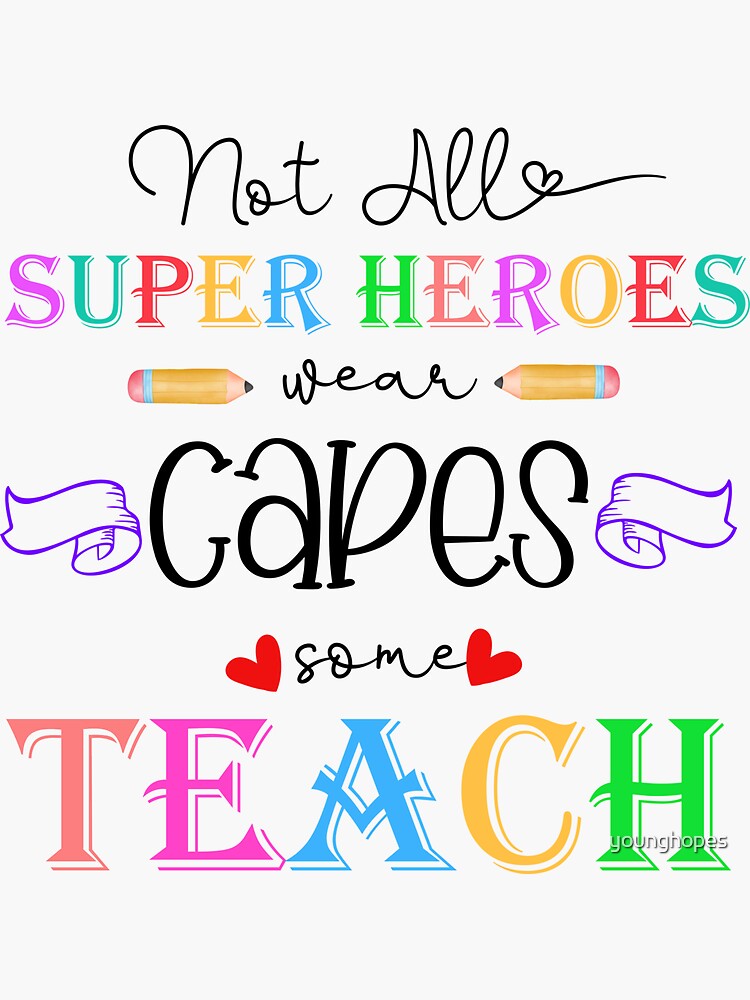 Not All
SUPER HEROES
wear
CAPES
some
TEACH
younghopes